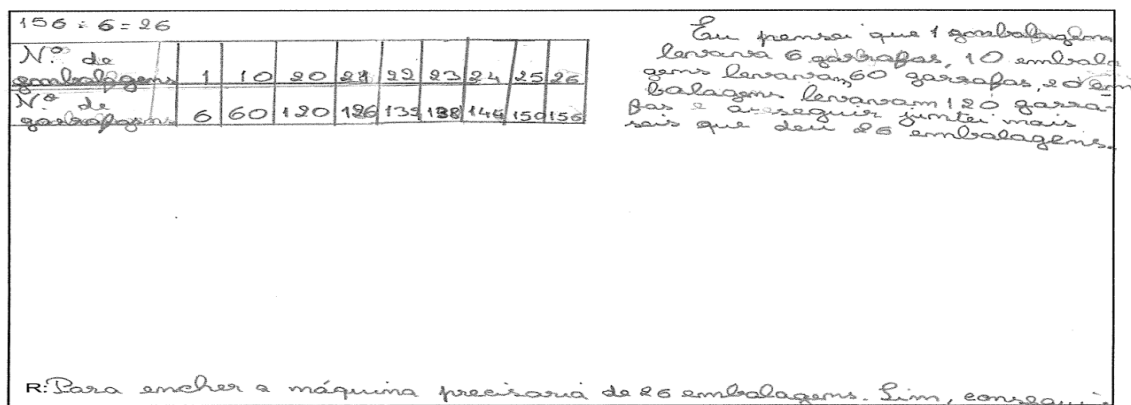 156 : 6 = 26
N.º de
1 10 20 21 22 23 24 25 26
N.º de
6 60 120 126 132 138 144 150 156
Eu pensei que 1
levava 6 garrafas, 10 embala
gens levavam 60 garrafas, 20 em
balagens levavam 120 garra-
fas e a seguir juntei mais
seis que deu 26 embalagens.
R: Para encher a máquina precisaria de 26 embalagens. Sim, consegui